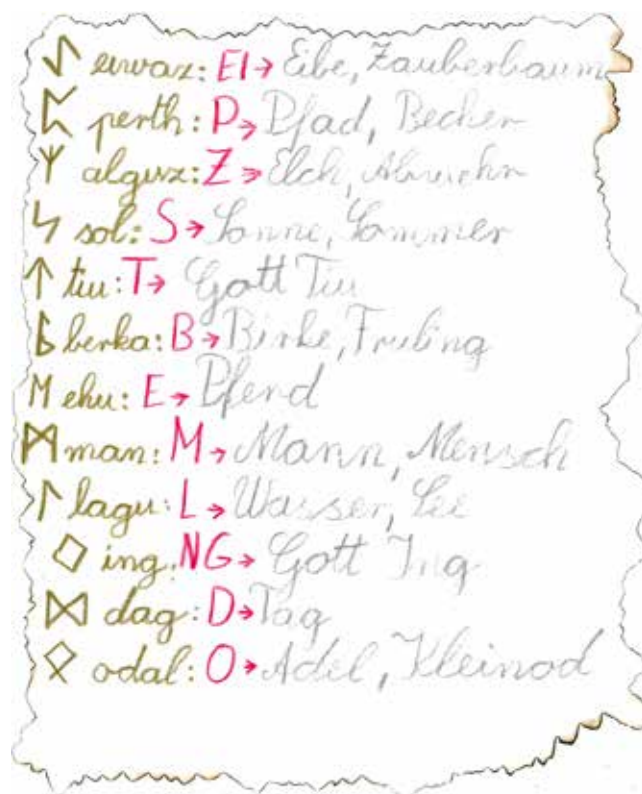 ᛇ eiwaz: EI→ Eibe, Zauberbaum
ᛈ perth: P→ Pfad, Becher
ᛉ algwz: Z→ Elch, Abwehr
ᛋ sol: S→ Sonne, Sommer
ᛏ tiu: T→ Gott Tiu
ᛒ berka: B→ Birke, Fruling
ᛖ ehu: E→ Pferd
ᛗ man: M→ Mann, Mensch
ᛚ lagu: L→ Wasser, See
ᛜ ing: NG→ Gott Ing
ᛞ dag: D→ Tag
ᛟ odal: O→ Adel, Kleinod